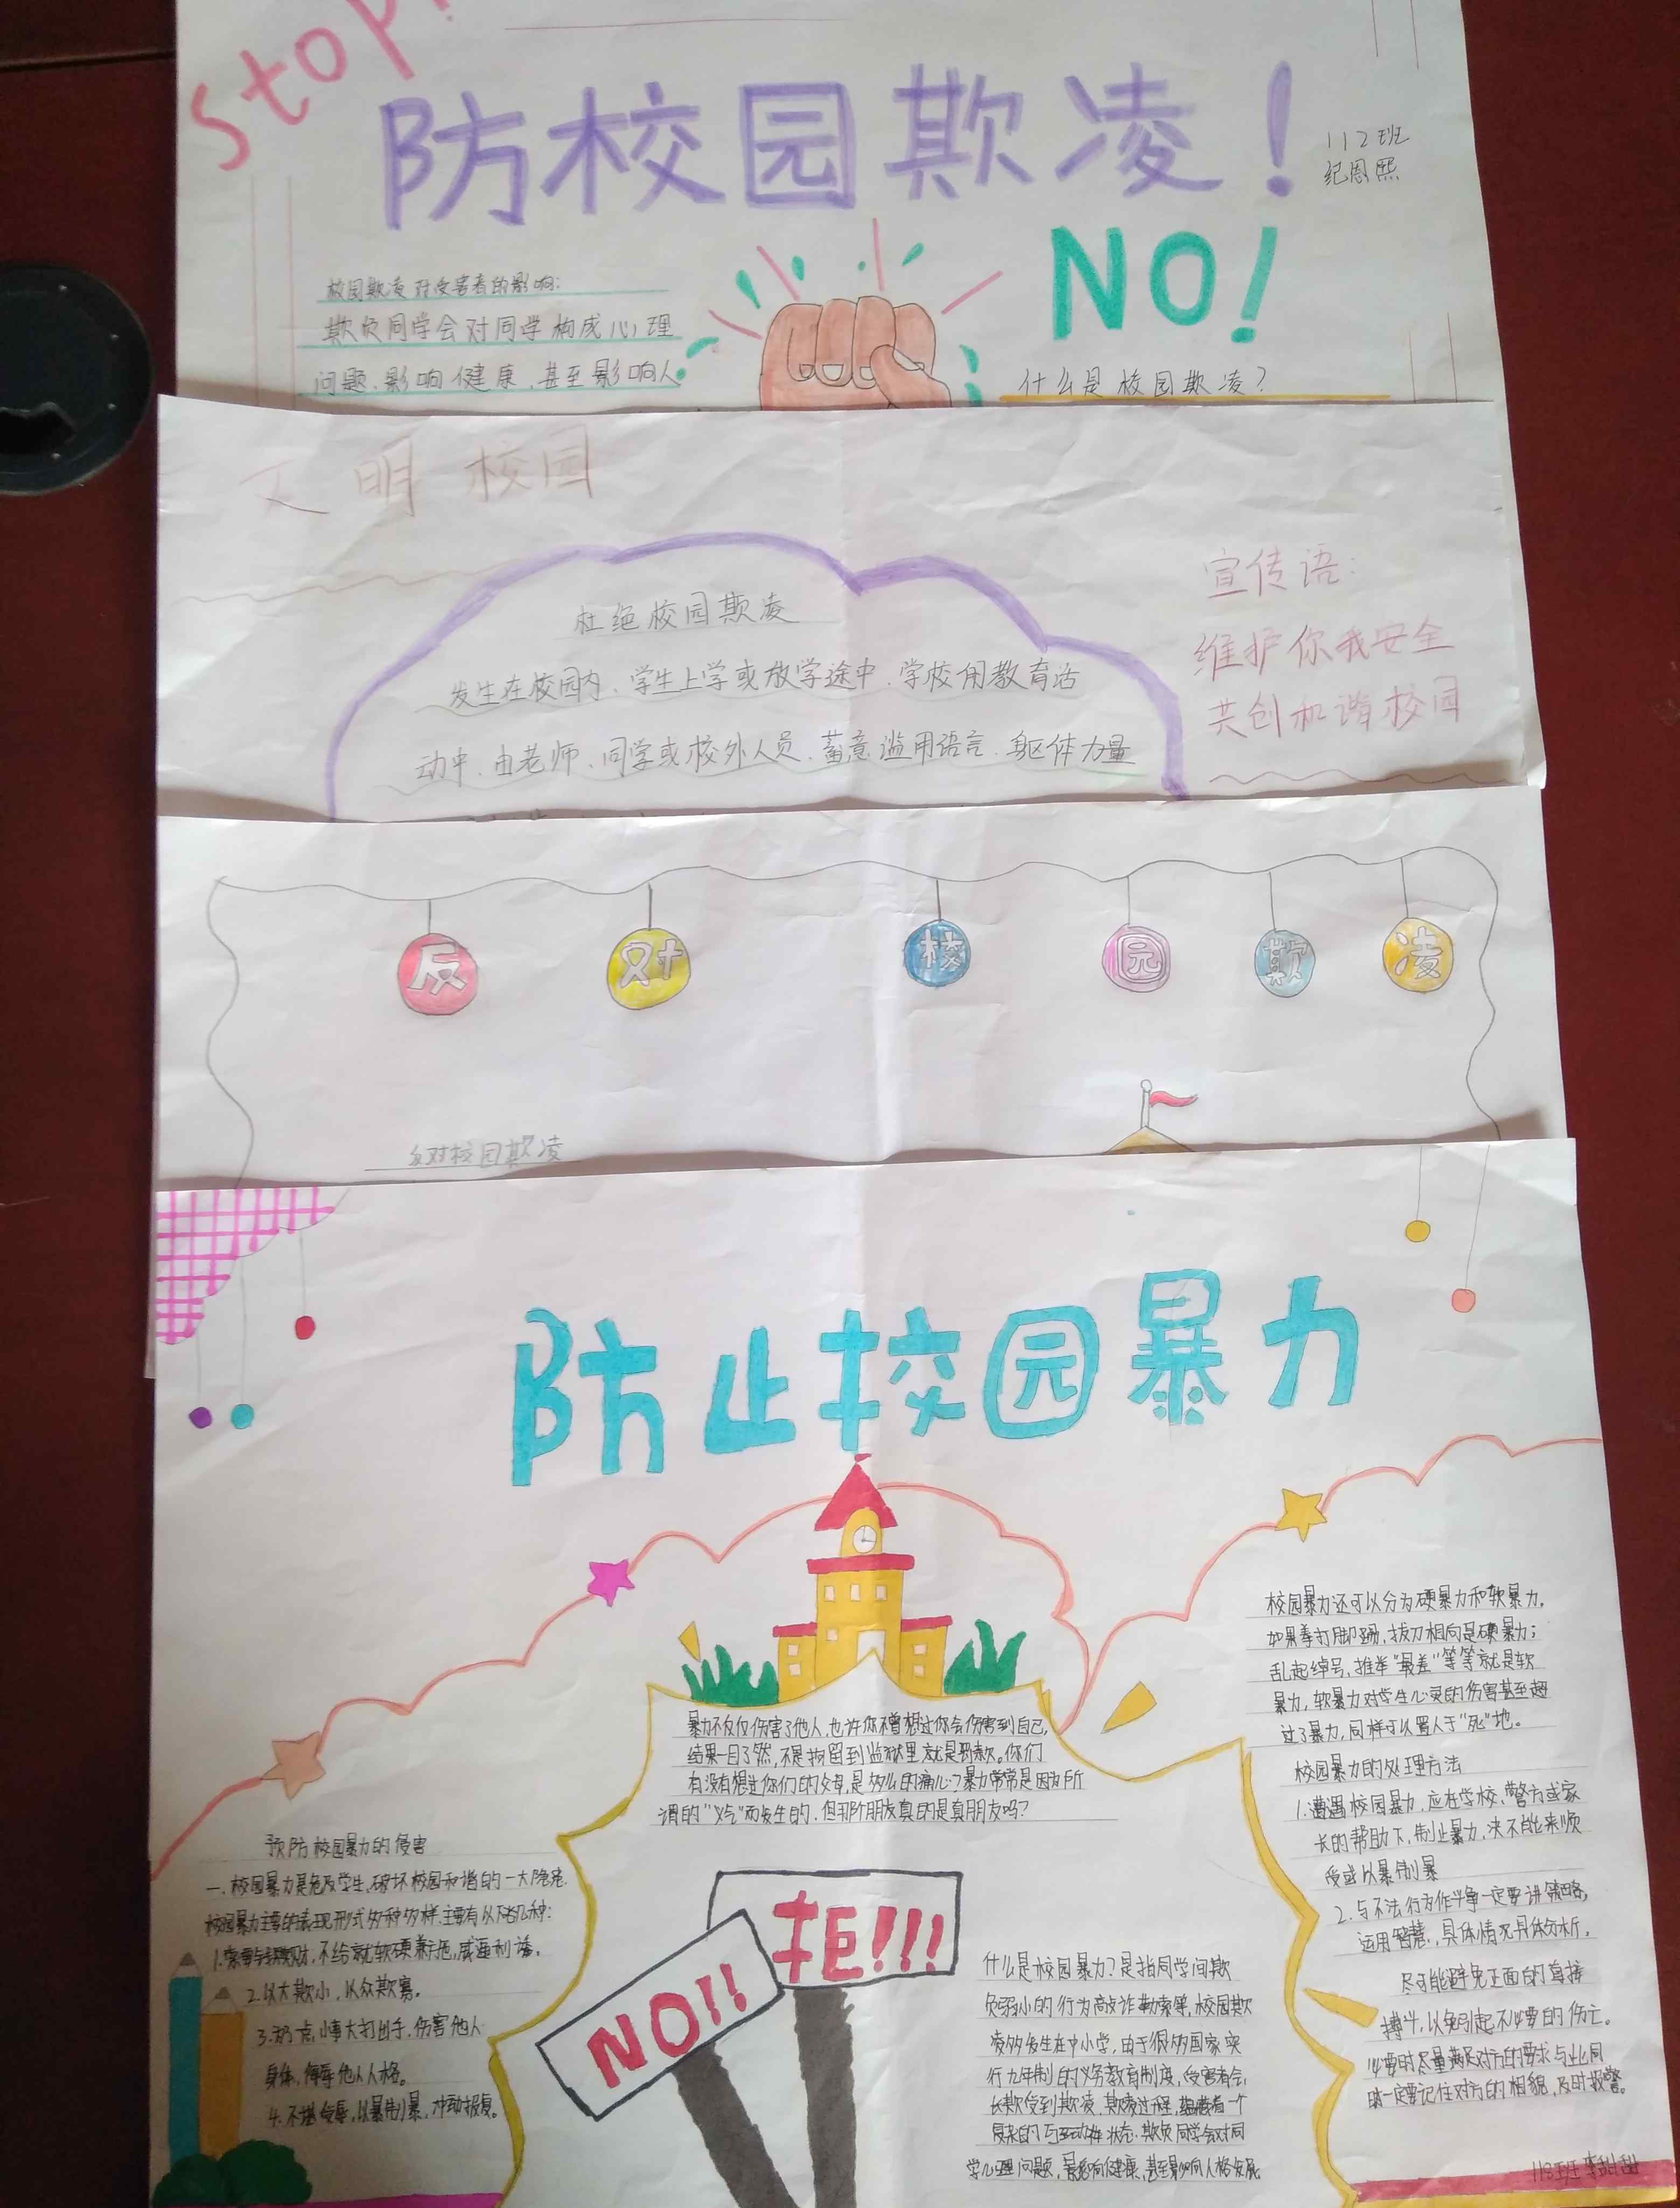 Stop!
防校园欺凌！
112班
纪恩熙
NO!
校园欺凌对受害者的影响：
欺负同学会对同学构成心理
问题、影响健康，甚至影响人
什么是校园欺凌？
文明校园
宣传语：
维护你我安全
共创和谐校园
杜绝校园欺凌
发生在校园内、学生上学或放学途中、学校用教育活
动中、由老师、同学或校外人员、蓄意滥用语言、躯体力量
反对校园欺凌
反对校园欺凌
防止校园暴力
暴力不仅仅伤害了他人，也许你不曾想过你会伤害到自己，
结果一目了然，不是拘留到监狱里就是罚款。你们
有没有想过你们的父母，是多么的痛心？暴力常常是因为所
谓的“义气”而发生的，但那个朋友真的是真朋友吗？
预防校园暴力的侵害
一、校园暴力是危及学生、破坏校园和谐的一大隐患
校园暴力主要的表现形式多种多样，主要有以下几种：
不给就软硬兼施，威逼利诱。
2.以大欺小，以众欺寡。
3.为一点小事大打出手，伤害他人
身体，侮辱他人人格。
4.不堪受辱，以暴制暴，冲动报复。
拒!!!
NO!!
什么是校园暴力？是指同学间欺
负弱小的行为敲诈勒索等，校园欺
凌多发生在中小学，由于很多国家实
行九年制的义务教育制度，受害者会
长期受到欺凌，欺凌过程，蕴藏着一个
复杂的互动性状态，欺负同学会对同
学心理问题，影响健康，甚至影响人格发展
校园暴力还可以分为硬暴力和软暴力。
如果拳打脚踢，拔刀相向是硬暴力；
乱起绰号，推举“最差”等等就是软
暴力，软暴力对学生心灵的伤害甚至超
过了暴力，同样可以置人于“死”地。
校园暴力的处理方法
1.遭遇校园暴力，应在学校、警方或家
长的帮助下，制止暴力，决不能来顺
受或以暴制暴
2.与不法行为作斗争一定要讲策略，
运用智慧，具体情况具体分析，
尽可能避免正面的直接
搏斗，以免引起不必要的伤亡。
必要时尽量满足对方的要求与此同
时一定要记住对方的相貌，及时报警。
118班 李甜甜